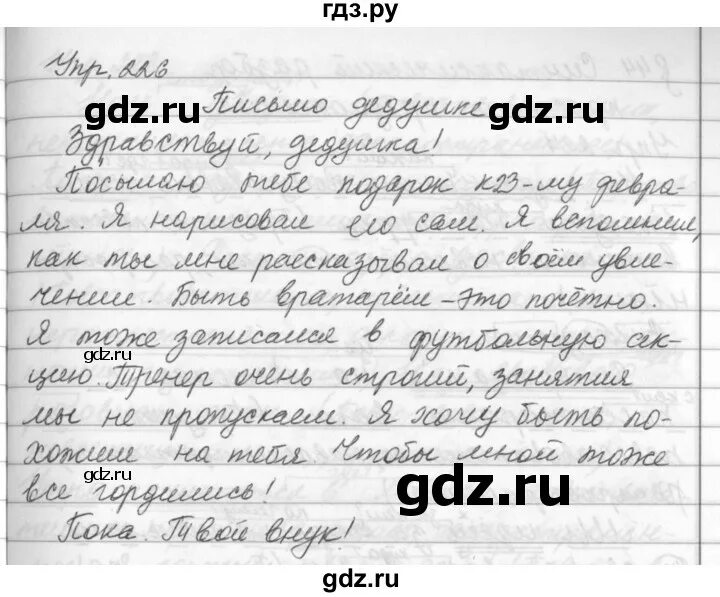 гдз.ру
Упр. 226
gdz.ru
gdz.ru
Письмо дедушке
Здравствуй, дедушка!
Посылаю тебе подарок к 23-му февра-
ля. Я нарисовал его сам. Я вспомнил,
как ты мне рассказывал о своём увле-
чении. Быть вратарём - это почётно.
Я тоже записался в футбольную сек-
gdz.ru
цию. Тренер очень строгий, занятия
мы не пропускаем. Я хочу быть по-
хожим на тебя. Чтобы мной тоже
gdz.ru
gdz.ru
все гордились!
Пока. Твой внук!
gdz.ru